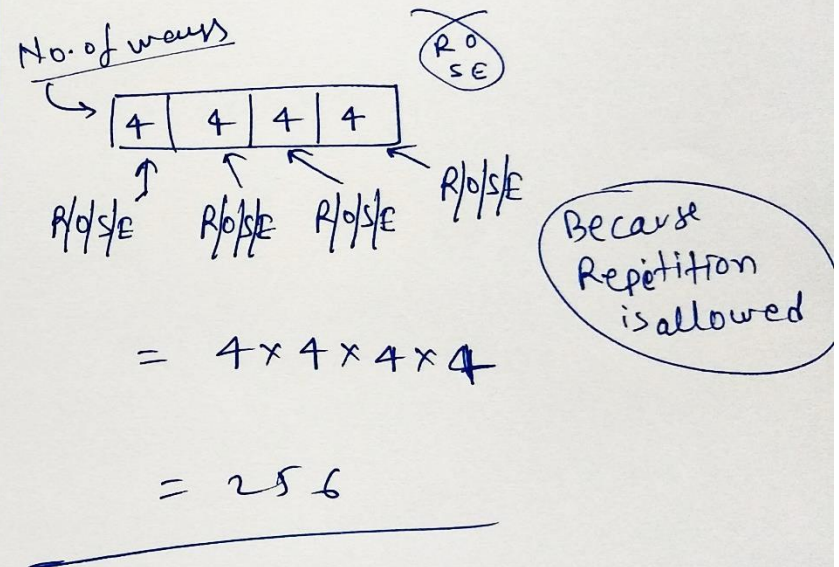 No. of ways
R O
S E
4 4 4 4
R/O/S/E R/O/S/E R/O/S/E R/O/S/E
Because
Repetition
is allowed
= 4 × 4 × 4 × 4
= 256